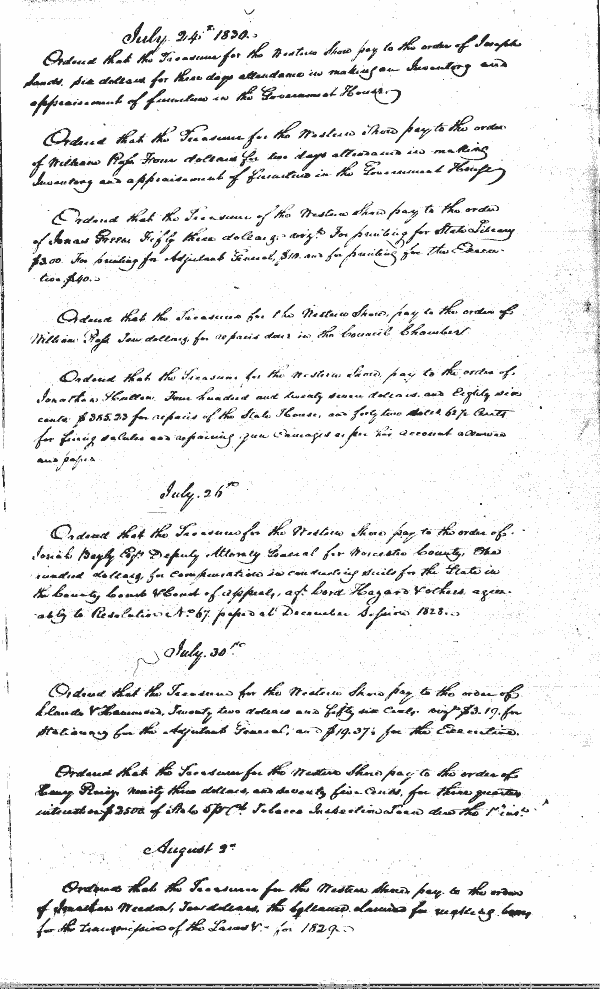 July 24th 1830.
Ordered that the Treasurer for the Western Shore pay to the order of Joseph
Sands, six dollars for three days attendance in making an Inventory and
appraisement of furniture in the Government House.
Ordered that the Treasurer for the Western Shore pay to the order
of William Ross Four dollars for two days attendance in making
Inventory and appraisement of furniture in the Government House
Ordered that the Treasurer of the Western Shore pay to the order
of Jonas Green Fifty three dollars, vizt. For printing for State Library
$3.00. For printing for Adjutant General, $10. and for printing for the Execu-
tive $40.
Ordered that the Treasurer for the Western Shore, pay to the order of
William Ross Ten dollars, for repairs done in the Council Chamber
Ordered that the Treasurer for the Western Shore, pay to the order of
Jonathan Hutton, Four hundred and twenty seven dollars, and Eighty six
cents $385.23 for repairs of the State House, and forty two dolls 62½ Cents
for firing salutes and repairing gun Carriages as per his account
and
July 26th
Ordered that the Treasurer for the Western Shore pay to the order of
Josiah Bayly Esqr. Deputy Attorney General for Worcester County, One
hundred dollars, for compensation in conducting suits for the State in
the County Court & Court of Appeals, agt. Lord Hagard & others, agree-
ably to Resolution No. 67. passed at December Session 1828.
July 30th
Ordered that the Treasurer for the Western Shore pay to the order of
& Hammond, Twenty two dollars and fifty six Cents, vizt. $3.19 for
Stationary for the Adjutant General, and $19.37½ for the Executive.
Ordered that the Treasurer for the Western Shore pay to the order of
Henry ninety three dollars, and seventy five Cents, for three quarters
interest on $2500 of State 5 pr Ct. Tobacco Inspection Loan due the 1st inst.
August 2d
Ordered that the Treasurer for the Western Shore pay to the order
of Jonathan Weedon, Ten dollars, the balance claimed for making boxes
for the transmission of the Laws &c for 1829.